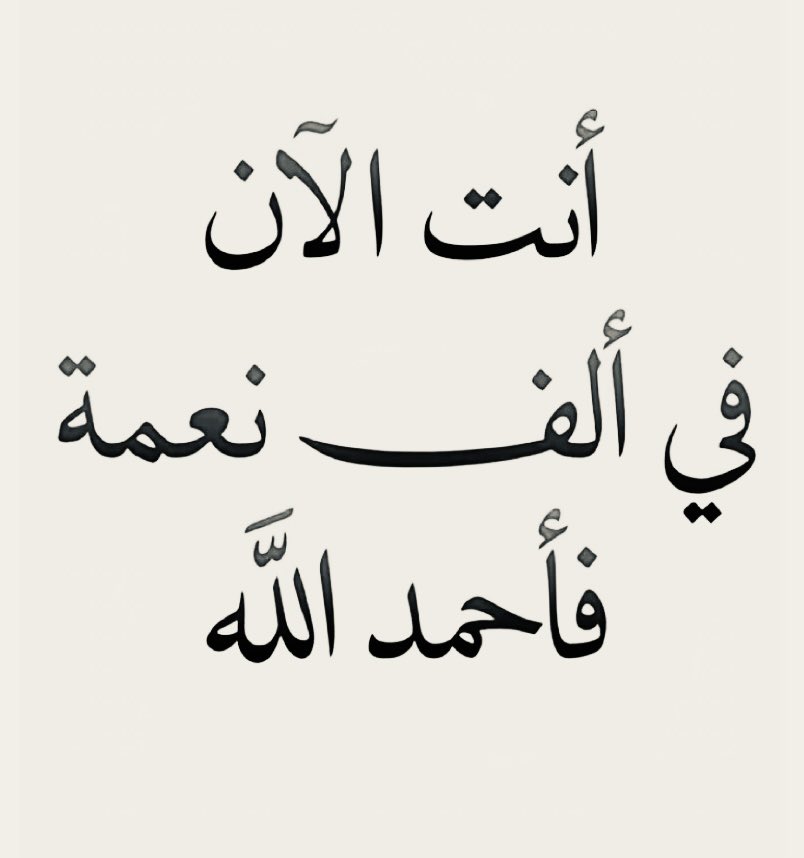 أنت الآن
في ألف نعمة
فأحمد اللَّه